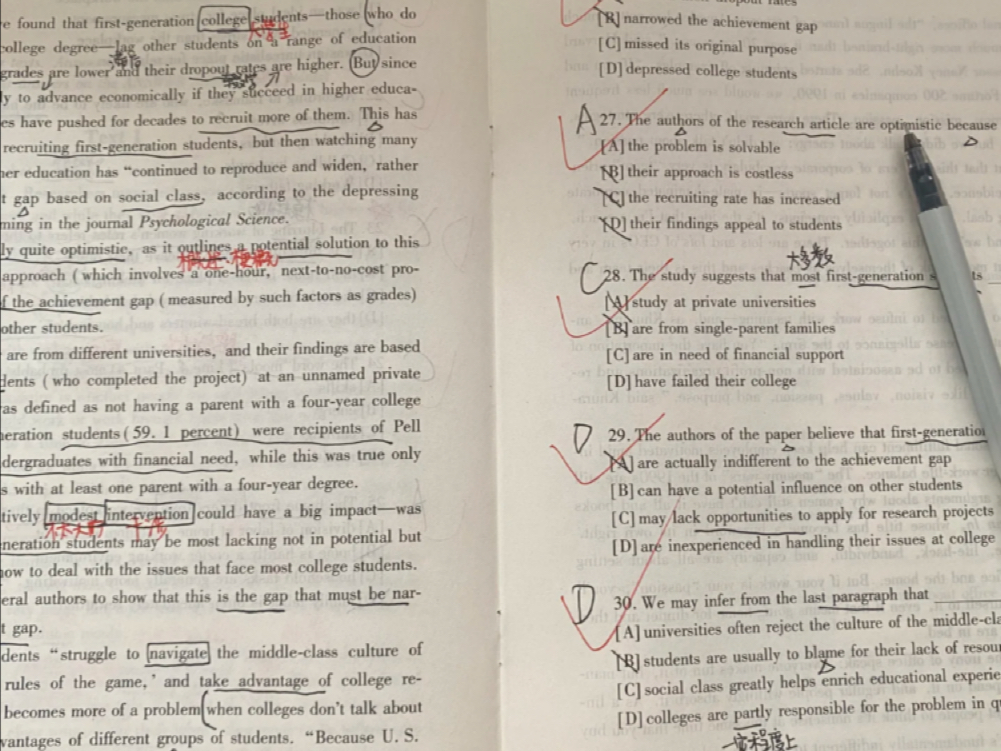 e found that first-generation college students—those who do
college degree—lag other students on a range of education
大学生
grades are lower and their dropout rates are higher. But since
ly to advance economically if they succeed in higher educa-
es have pushed for decades to recruit more of them. This has
recruiting first-generation students, but then watching many
her education has “continued to reproduce and widen, rather
t gap based on social class, according to the depressing
ming in the journal Psychological Science.
ly quite optimistic, as it outlines a potential solution to this
概述.梗概
approach (which involves a one-hour, next-to-no-cost pro-
f the achievement gap (measured by such factors as grades)
other students.
are from different universities, and their findings are based
dents (who completed the project) at an unnamed private
as defined as not having a parent with a four-year college
neration students (59. 1 percent) were recipients of Pell
dergraduates with financial need, while this was true only
s with at least one parent with a four-year degree.
tively modest intervention could have a big impact—was
干涉
neration students may be most lacking not in potential but
how to deal with the issues that face most college students.
eral authors to show that this is the gap that must be nar-
t gap.
dents “struggle to navigate the middle-class culture of
rules of the game,’ and take advantage of college re-
becomes more of a problem when colleges don’t talk about
vantages of different groups of students. “Because U. S.
rates
[B] narrowed the achievement gap
[C] missed its original purpose
[D] depressed college students
A 27. The authors of the research article are optimistic because
[A] the problem is solvable
[B] their approach is costless
[C] the recruiting rate has increased
[D] their findings appeal to students
大多数
C 28. The study suggests that most first-generation
[A] study at private universities
[B] are from single-parent families
[C] are in need of financial support
[D] have failed their college
D 29. The authors of the paper believe that first-generation
[A] are actually indifferent to the achievement gap
[B] can have a potential influence on other students
[C] may lack opportunities to apply for research projects
[D] are inexperienced in handling their issues at college
D 30. We may infer from the last paragraph that
[A] universities often reject the culture of the middle-cla
[B] students are usually to blame for their lack of resou
[C] social class greatly helps enrich educational experie
[D] colleges are partly responsible for the problem in q
一定程度上